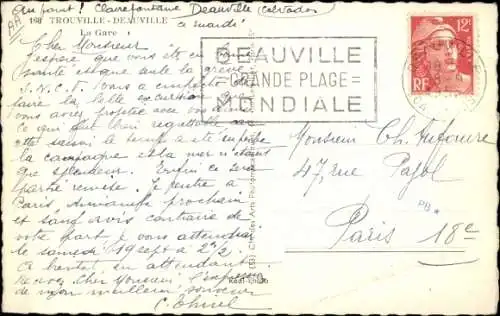 au point! Clairefontaine Deauville (Calvados)
ce mardi
198 TROUVILLE - DEAUVILLE
La Gare
Cher Monsieur
J'espère que vous êtes en bonne
santé et que la grève
S.N.C.F. vous a empêché de
faire la belle excursion que
vous aviez projetée avec vous
ce qui est bien regrettable car
cette saison le temps a été superbe
la campagne et la mer n'étaient
que splendeur. Enfin ce sera
partie remise. Je rentre à
Paris, dimanche prochain
et sauf avis contraire de
votre part je vous attendrai
le samedi 19 sept à 2h½
Ce bientôt, en attendant
recevez Cher Monsieur l'expression
de mon meilleur souvenir
DEAUVILLE
GRANDE PLAGE
MONDIALE
12F
RF
Monsieur Ch. Lefaure
47, rue Pajol
Paris 18e
PB
Réal-Photo